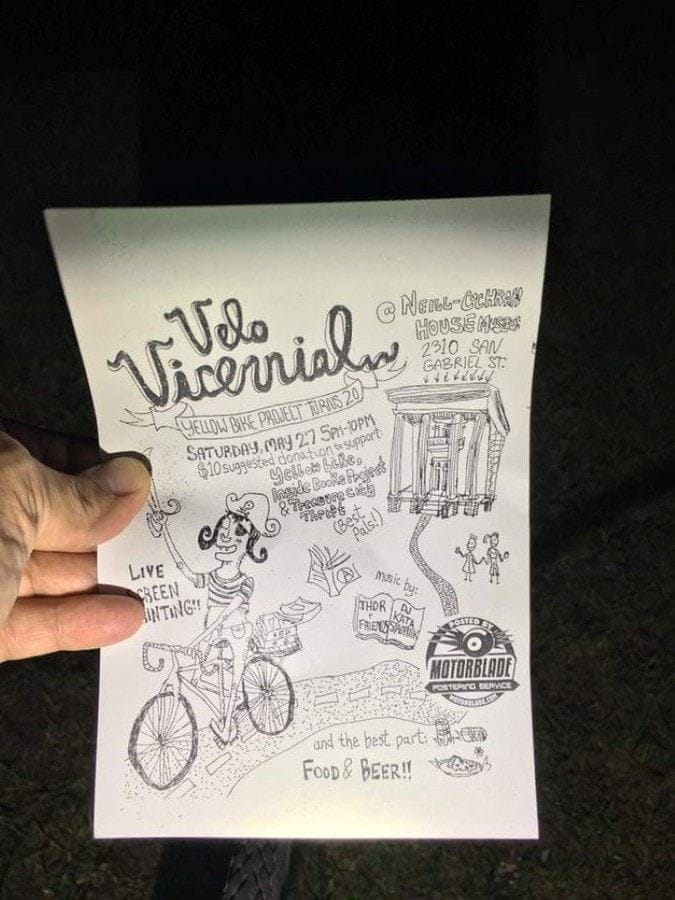 Velo
Vicennial
YELLOW BIKE PROJECT TURNS 20
SATURDAY, MAY 27 5PM-10PM
$10 suggested donation to support
Yellow bike,
Inside Books Project
& Treasure City
Thrift
(Best
Pals!)
@ NEILL-COCHRAN
HOUSE MUSEUM
2310 SAN
GABRIEL ST.
LIVE
SCREEN
PRINTING!!
music by:
THOR
+
FRIENDS
DJ
KATA
POSTED BY
MOTORBLADE
POSTERING SERVICE
MOTORBLADE.COM
and the best part:
FOOD & BEER!!